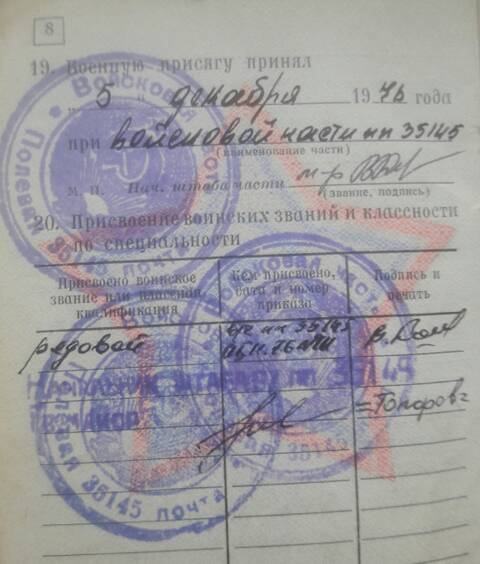 8
19. Военную присягу принял
" 5 " декабря 1976 года
при войсковой части пп 35145
(наименование части)
М. П. Нач. штаба части м-р
(звание, подпись)
20. Присвоение воинских званий и классности
по специальности
Присвоено воинское звание или классная квалификация
Кем присвоено, дата и номер приказа
Подпись и печать
рядовой
в/ч пп 35145
НАЧАЛЬНИК ШТАБА в/ч пп 35149
МАЙОР
Войсковая часть
Полевая почта 35145
Войсковая часть
35145 почта